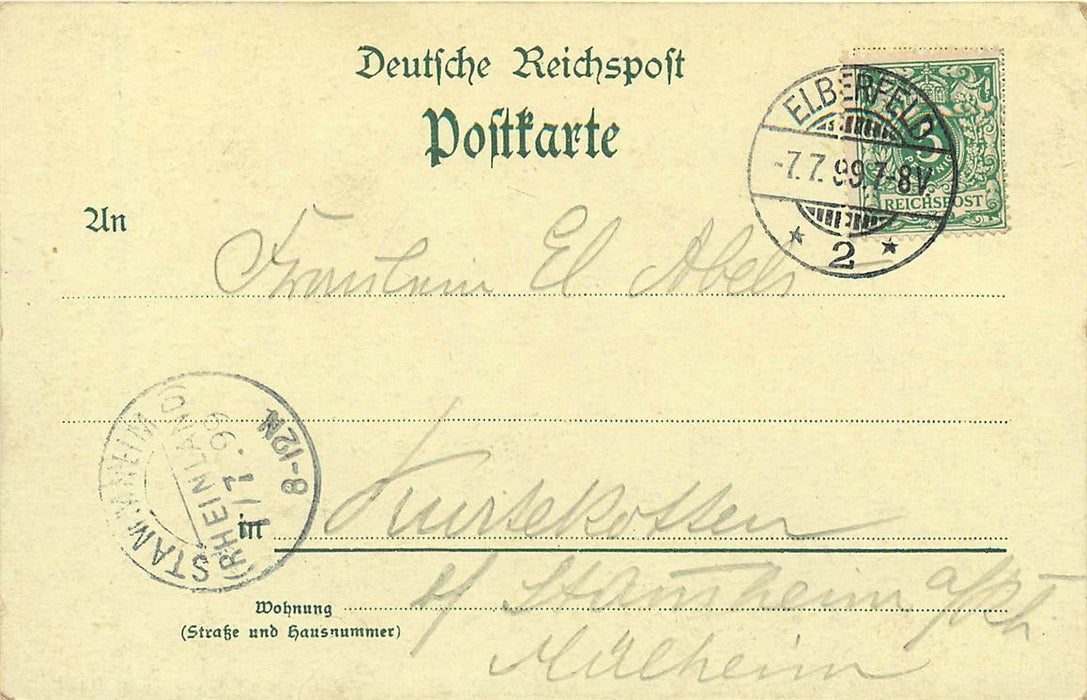 Deutsche Reichspost
Postkarte
ELBERFELD
-7.7.99.7-8V.
* 2 *
5
REICHSPOST
An
Fräulein El Abels
STAMMHEIM
(RHEINLAND)
7/7.99
8-12N
in Kurtekotten
Wohnung
(Straße und Hausnummer)
b/ Stammheim a/Rh.
Mülheim